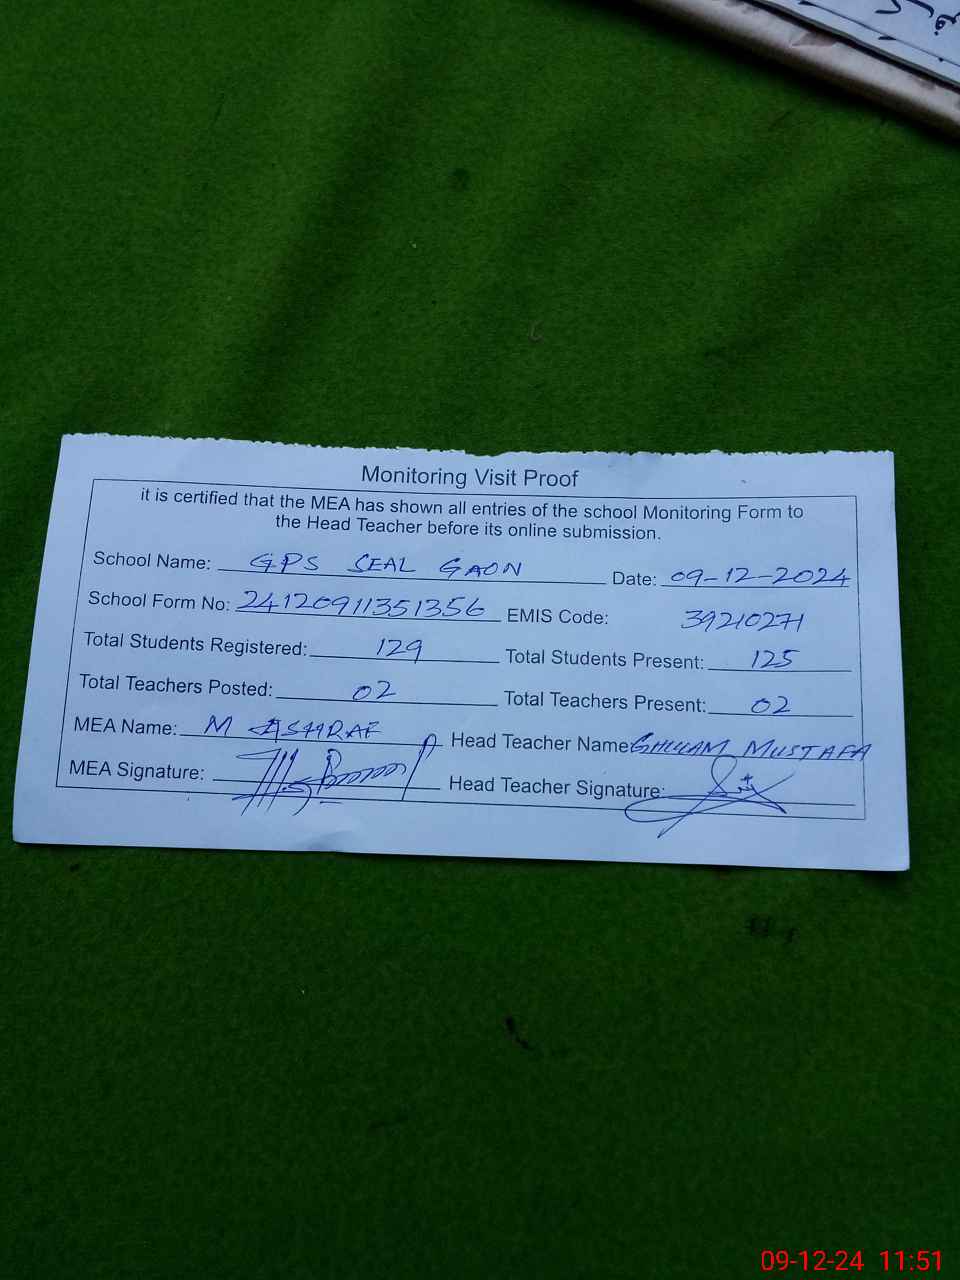 Monitoring Visit Proof
it is certified that the MEA has shown all entries of the school Monitoring Form to
the Head Teacher before its online submission.
School Name: GPS SEAL GAON Date: 09-12-2024
School Form No: 24120911351356 EMIS Code: 39210271
Total Students Registered: 129 Total Students Present: 125
Total Teachers Posted: 02 Total Teachers Present: 02
MEA Name: M ASHRAF Head Teacher Name GHULAM MUSTAFA
MEA Signature: Head Teacher Signature:
09-12-24 11:51